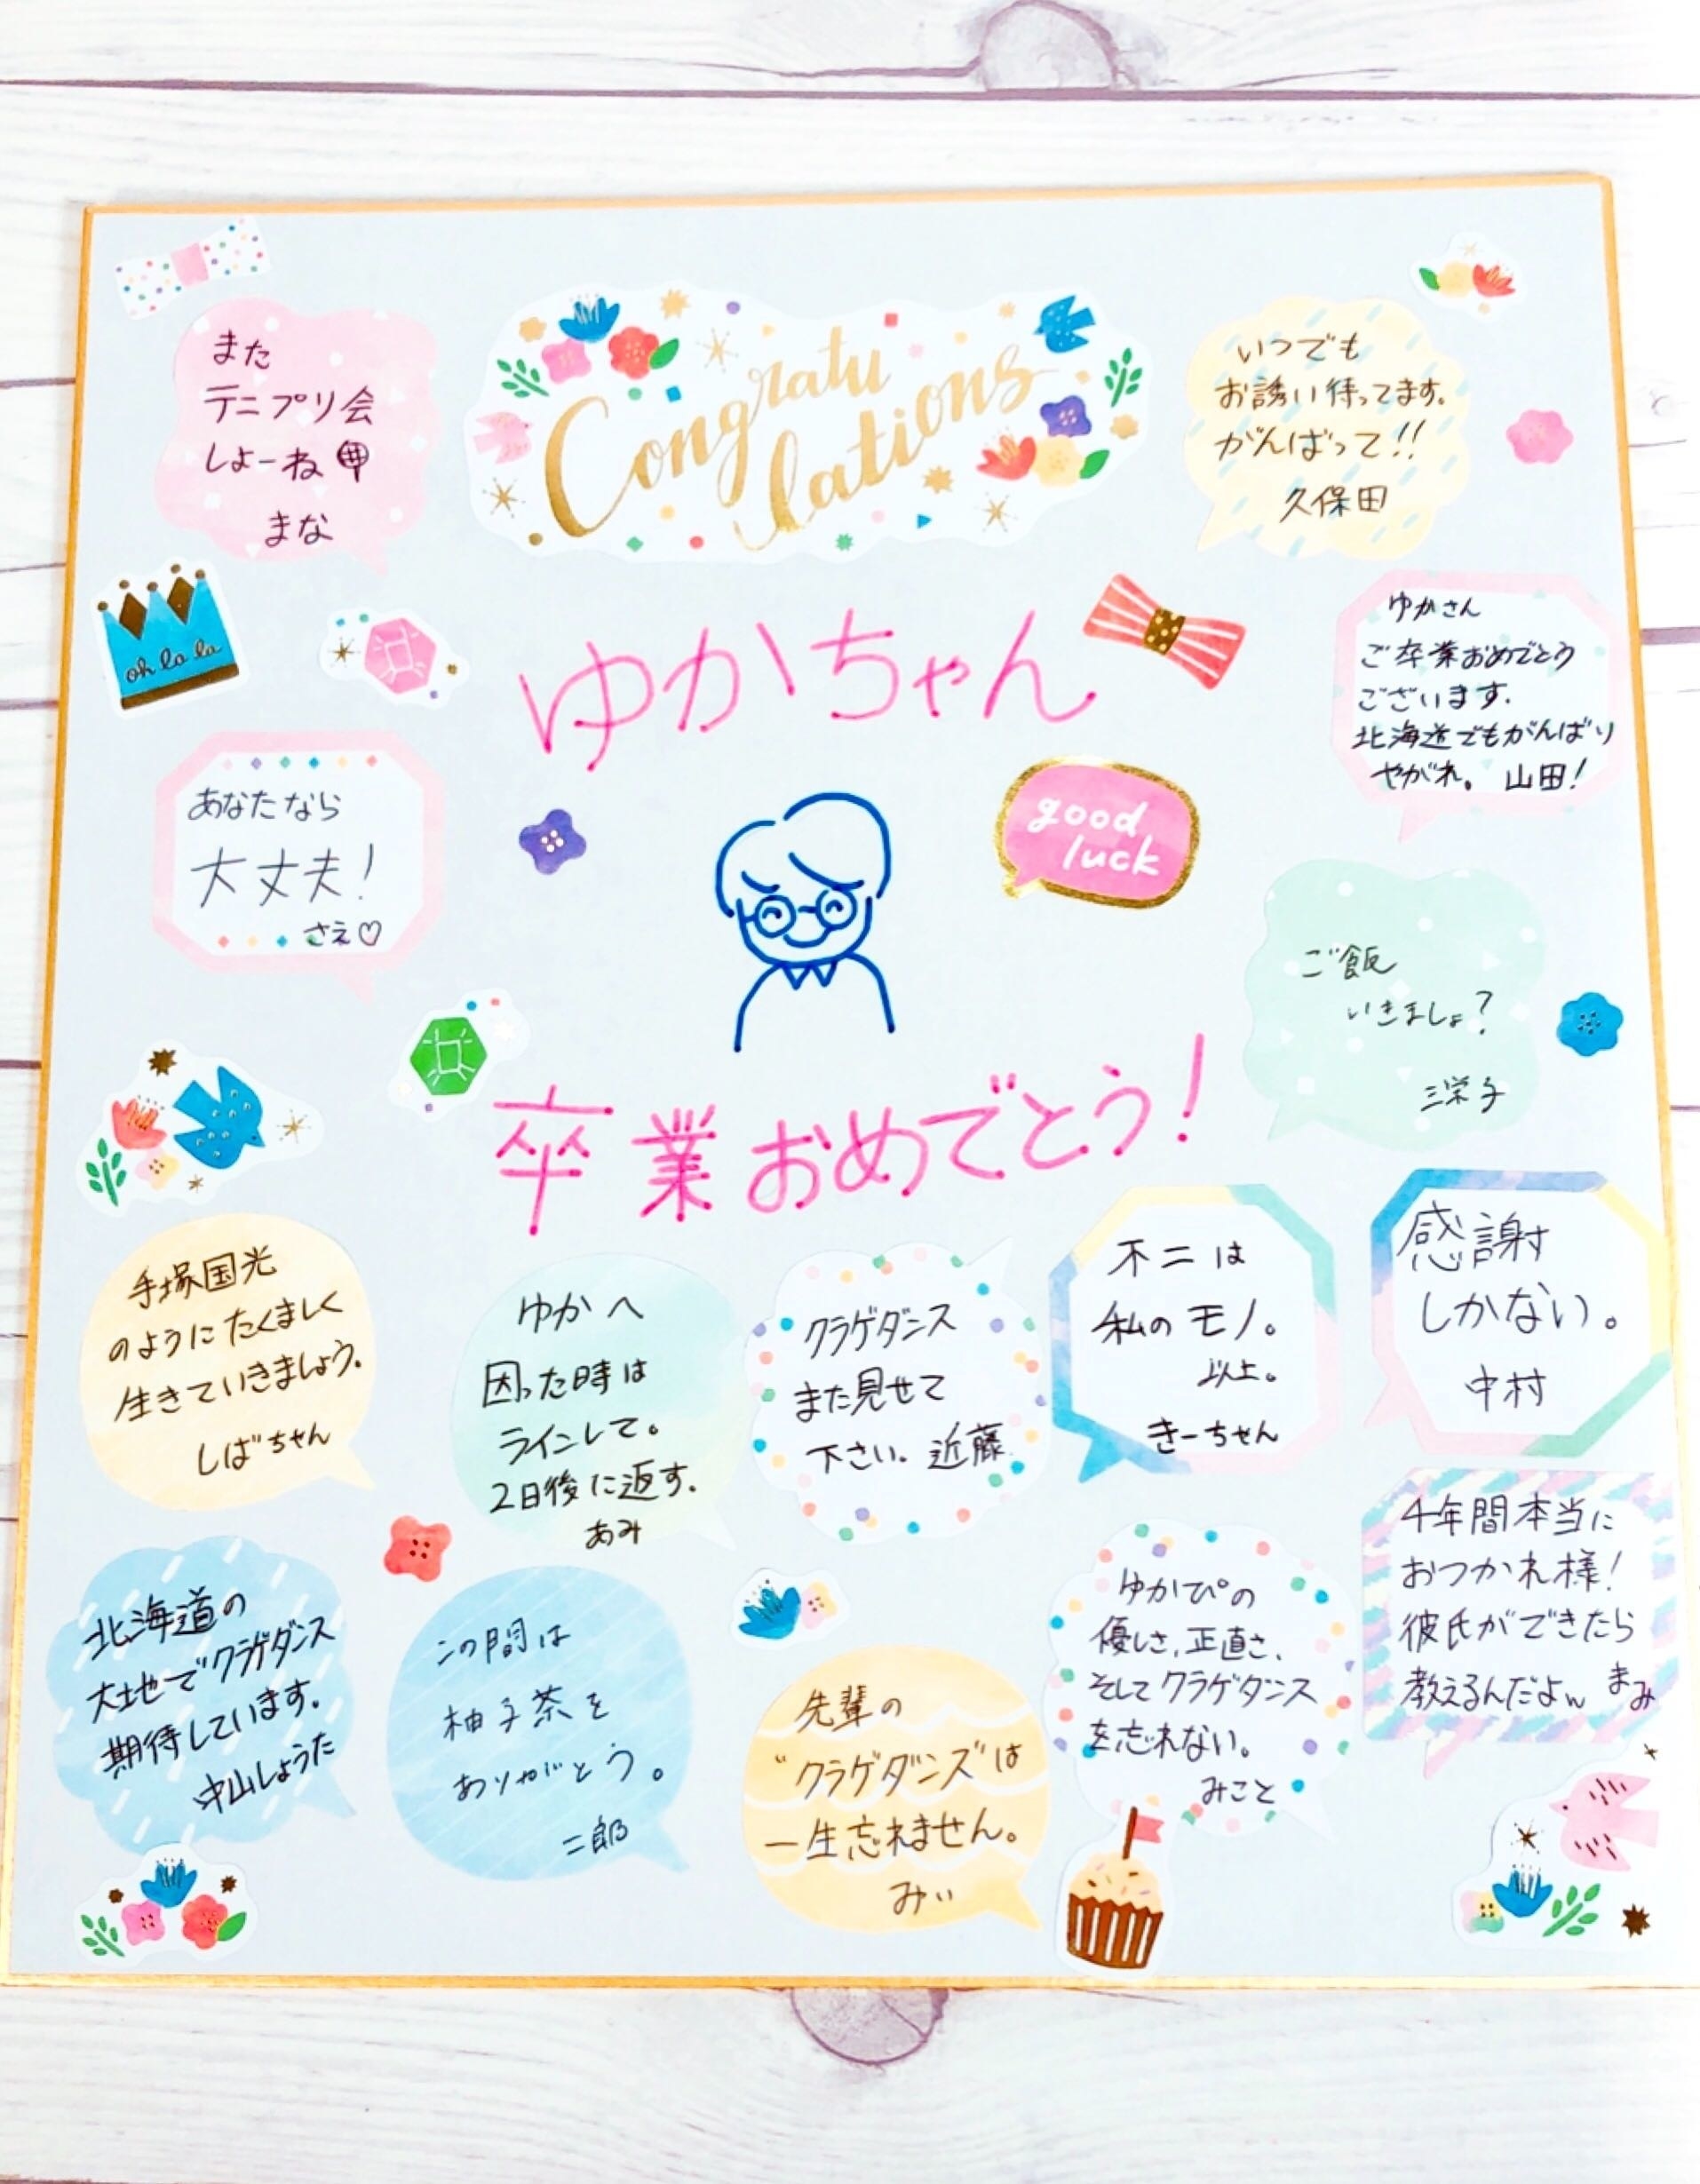 また
テニプリ会
しよーね
まな
Congratu
lations
いつでも
お誘い待ってます。
がんばって!!
久保田
oh la la
ゆかちゃん
ゆかさん
ご卒業おめでとう
ございます.
北海道でもがんばり
やがれ。 山田!
あなたなら
大丈夫!
さえ♡
good
luck
ご飯
いきましょ?
三栄子
卒業おめでとう!
手塚国光
のようにたくましく
生きていきましょう。
しばちゃん
ゆかへ
困った時は
ラインして。
2日後に返す.
あみ
クラゲダンス
また見せて
下さい。近藤
不二は
私のモノ。
以上。
きーちゃん
感謝
しかない。
中村
北海道の
大地でクラゲダンス
期待しています。
中山しょうた
この間は
柚子茶を
ありがとう。
二郎
先輩の
"クラゲダンス"は
一生忘れません。
みぃ
ゆかぴの
優しさ、正直さ、
そしてクラゲダンス
を忘れない。
みこと
4年間本当に
おつかれ様!
彼氏ができたら
教えるんだよw まみ